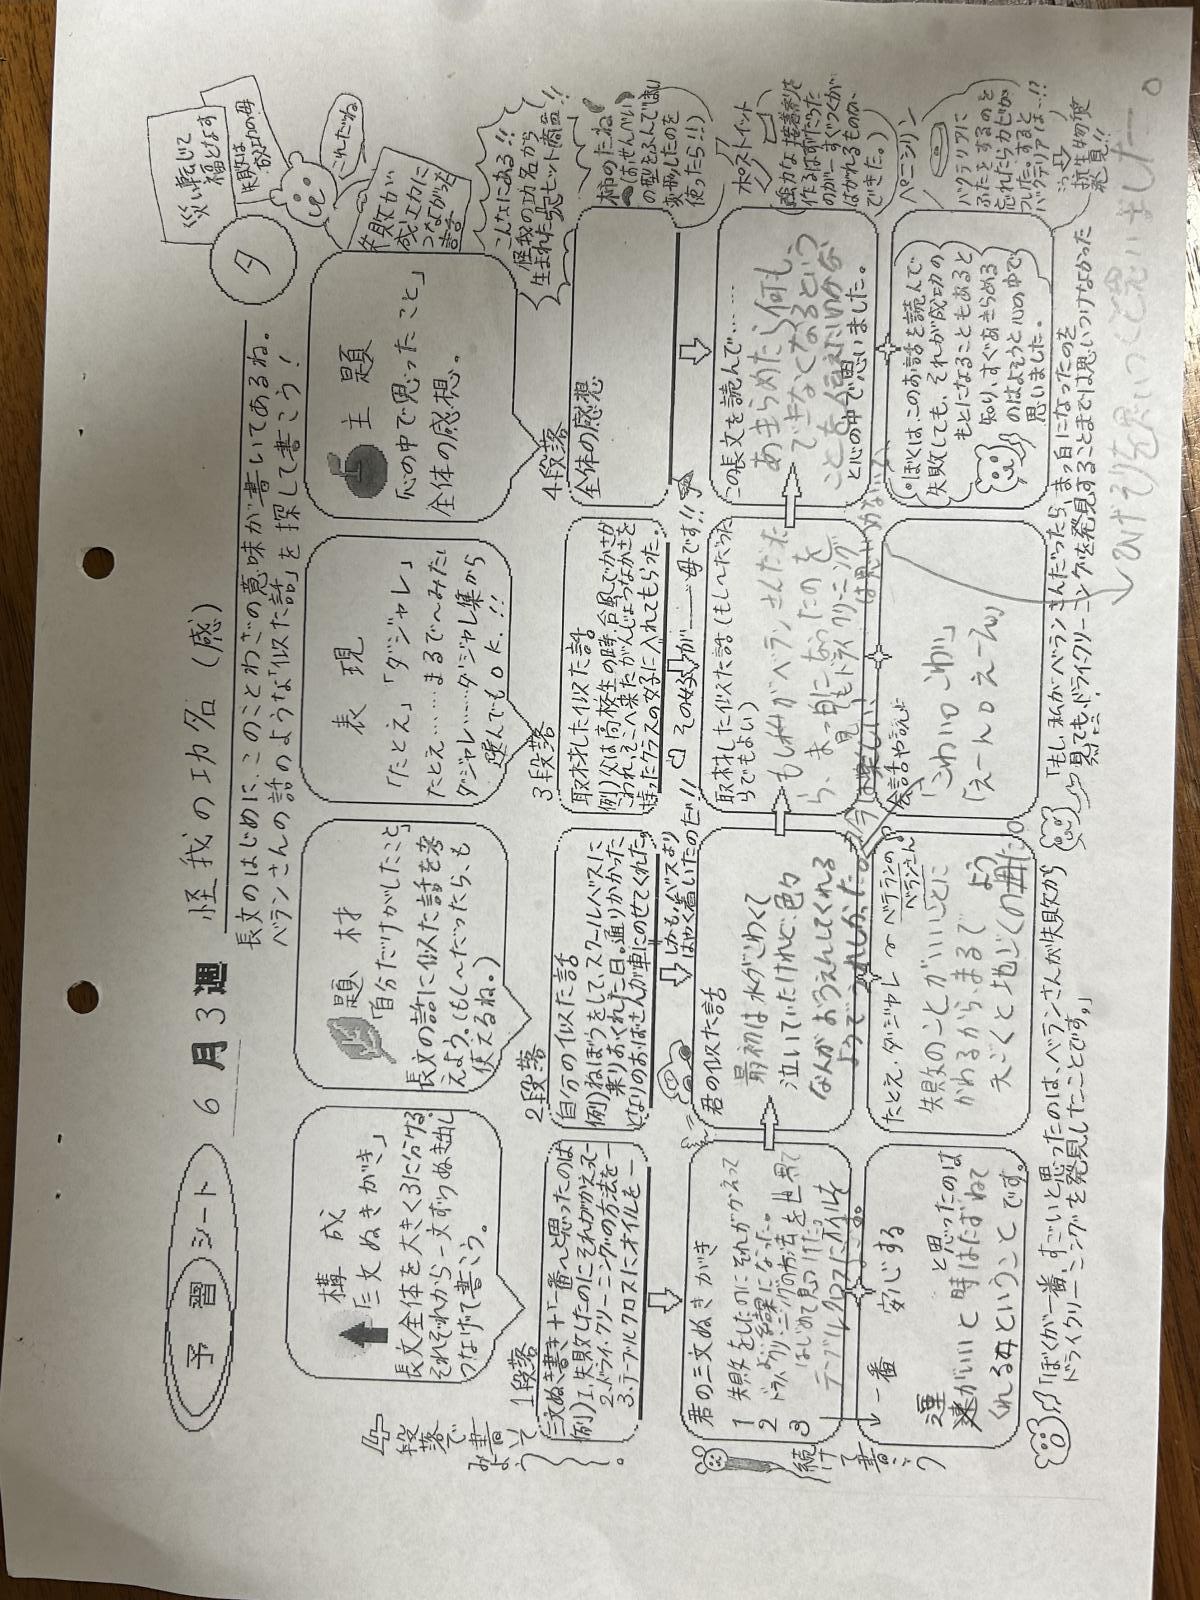 予習シート
6月3週 怪我の功名(感)
タ
災い転じて
福となす
失敗は
成功の母
これだね
失敗が
成功に
つながった
話
長文のはじめに、このことわざの意味が書いてあるね。
ベランさんの話のような「似た話」を探して書こう!
構成
「三文ぬきがき」
長文全体を大きく3に分ける
それぞれから一文ずつぬき出し
つなげて書こう。
題材
「自分だけがしたこと」
長文の話に似た話を考
えよう。(もし〜だったら、も
使えるね。)
表現
「たとえ」「ダジャレ」
たとえ……まるで〜みたい
ダジャレ……ダジャレ集から
選んでもOK!!
主題
「心の中で思ったこと」
全体の感想。
こんなにある!!
怪我の功名から
生まれた大ヒット商品!!
4段落で書いてみよう。
1段落
三文ぬき書き+「一番〜と思ったのは
例)1.失敗したのにそれがかえって〜
2.ドライクリーニングの方法を〜
3.テーブルクロスにオイルを〜
2段落
自分の似た話
例)ねぼうをして、スクールバスに
乗りおくれた日。通りかかった
となりのおばさんが車にのせてくれた。
しかもバスより
はやく着いたのだ!!
3段落
取材した似た話
例)父は高校生の時、台風でかさが
こわれ、
持ったクラスの女子に入れてもらった。
その女子が
母です!!
4段落
全体の感想
柿のたね
の型をふんで
変形したのを
使ったら!!)
ポストイット
強力な接着剤を
作るはずだった
のが…すぐつくが
はがれるものが
できた。)
君の三文ぬきがき
1 失敗をしたのにそれがかえって
よい結果になった。
2 ドライクリーニングの方法を世界で
はじめて見つけた。
3 テーブルクロスにオイルを
君の似た話
最初は水がこわくて
泣いていたけれど、色々
なんがおうえんしてくれる
ようでうれしかった。
今は楽しい!
取材した似た話(もし〜だった
らでもよい)
もし私がベランさんだった
ら、まっ白になったのを
見てもドライクリーニング
は思いつかない
この長文を読んで……
あきらめたら何も
できなくなるという
ことを伝えたいのかな
と心の中で思いました。
ペニシリン
バクテリアに
ふたをするのを
忘れたらカビが
ついた。すると
バクテリアは…!!
抗生物質
発見!!
続けて書こう
一番 安心する
と思ったのは
運がいい時はたずねて
くれるということです。
たとえ・ダジャレ
ベランの
ベランさん
失敗のことがいいことに
かわるからまるで
天ごくと地ごくの
よう
会話や説明
「こわいコわい」
「えーんロえーん」
「ぼくは、このお話を読んで
失敗しても、それが成功の
もとになることもあると
知り、すぐあきらめる
のはよそうと心の中で
思いました。
「ぼくが一番、すごいと思ったのは、ベランさんが失敗から
ドライクリーニングを発見したことです。」
「もし、私がベランさんだったら、まっ白になったのを
見ても、ドライクリーニングを発見することまでは思いつけなかった
と思いました。